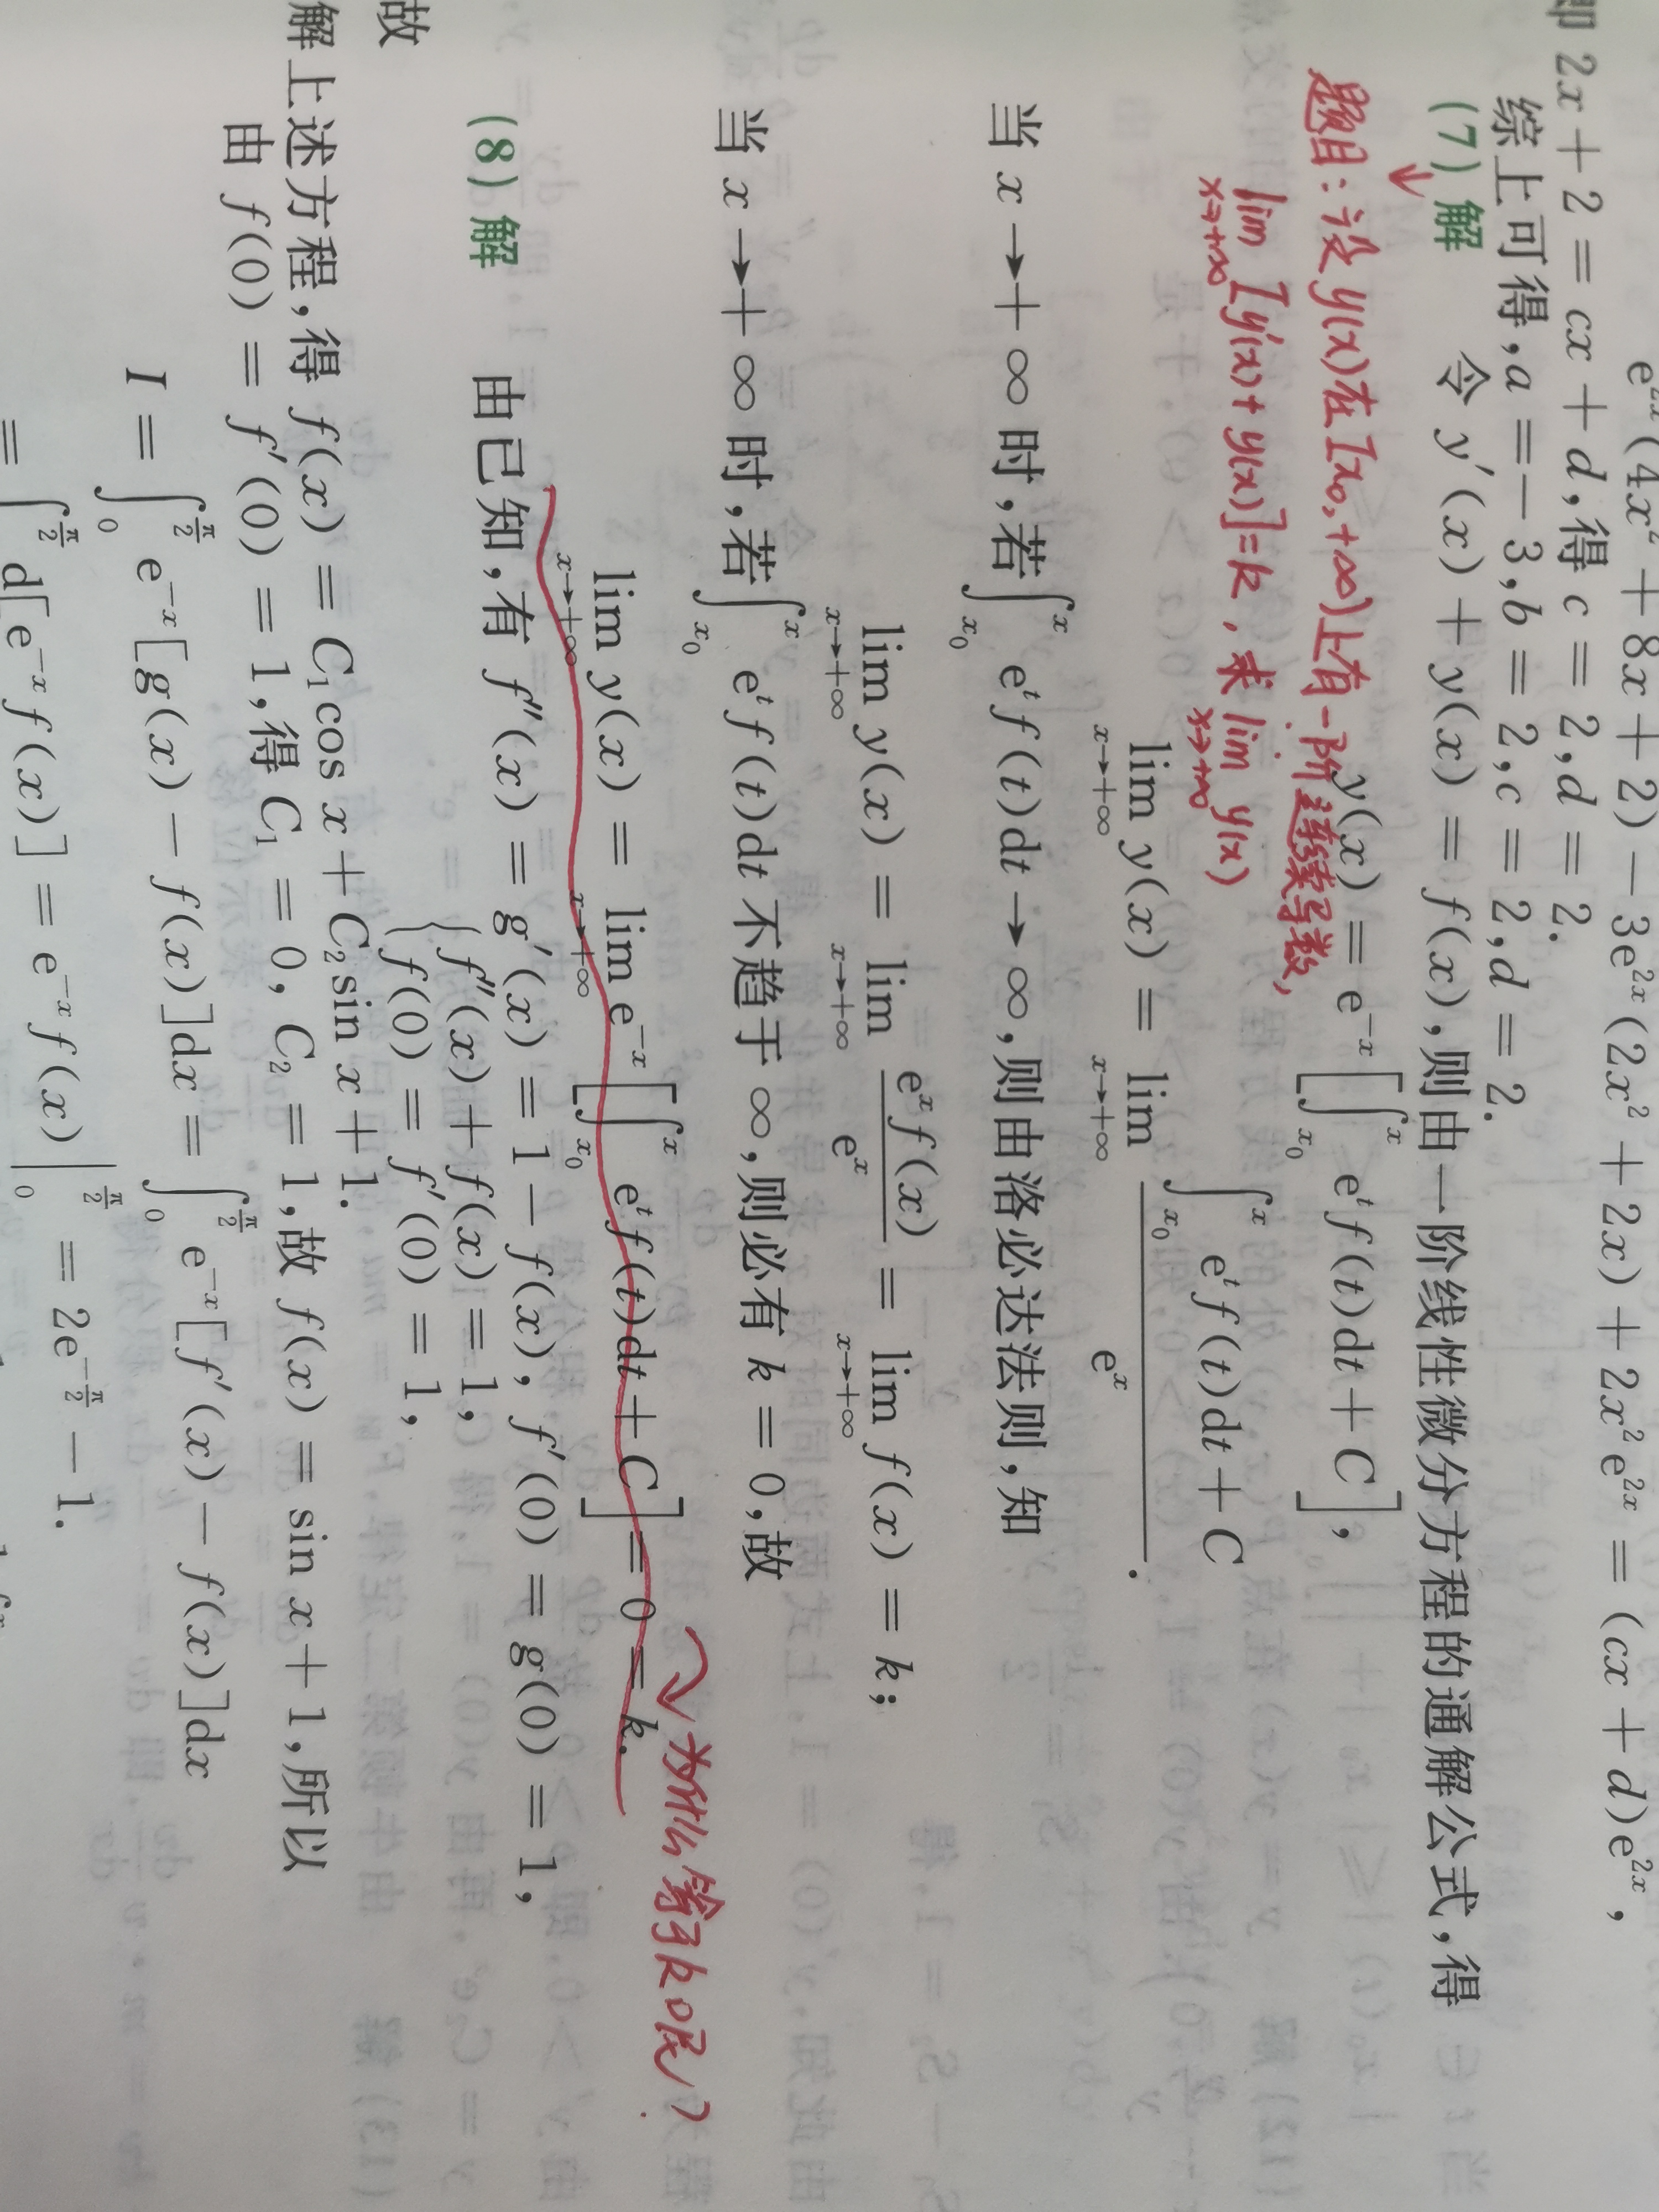 e^{2x}(4x²+8x+2)-3e^{2x}(2x²+2x)+2x²e^{2x}=(cx+d)e^{2x},
即 2x+2=cx+d,得 c=2,d=2.
综上可得,a=-3,b=2,c=2,d=2.
(7) 解 令 y′(x)+y(x)=f(x),则由一阶线性微分方程的通解公式,得
y(x)=e^{-x}[∫_{x₀}^{x} e^t f(t)dt+C],
题目:设y(x)在[x₀,+∞)上有一阶连续导数,
lim_{x→+∞}[y′(x)+y(x)]=k,求 lim_{x→+∞} y(x)
lim_{x→+∞} y(x)=lim_{x→+∞} (∫_{x₀}^{x} e^t f(t)dt+C)/e^x.
当 x→+∞时,若∫_{x₀}^{x} e^t f(t)dt→∞,则由洛必达法则,知
lim_{x→+∞} y(x)=lim_{x→+∞} e^x f(x)/e^x=lim_{x→+∞} f(x)=k;
当 x→+∞时,若∫_{x₀}^{x} e^t f(t)dt不趋于∞,则必有 k=0,故
lim_{x→+∞} y(x)=lim_{x→+∞} e^{-x}[∫_{x₀}^{x} e^t f(t)dt+C]=0=k.
为什么等于k 0呢?
(8) 解 由已知,有 f″(x)=g′(x)=1-f(x), f′(0)=g(0)=1,
故
{f″(x)+f(x)=1,
f(0)=f′(0)=1,
解上述方程,得 f(x)=C₁cos x+C₂sin x+1.
由 f(0)=f′(0)=1,得 C₁=0, C₂=1,故 f(x)=sin x+1,所以
I=∫_0^{π/2} e^{-x}[g(x)-f(x)]dx=∫_0^{π/2} e^{-x}[f′(x)-f(x)]dx
=∫_0^{π/2} d[e^{-x}f(x)]=e^{-x}f(x)|_0^{π/2}=2e^{-π/2}-1.